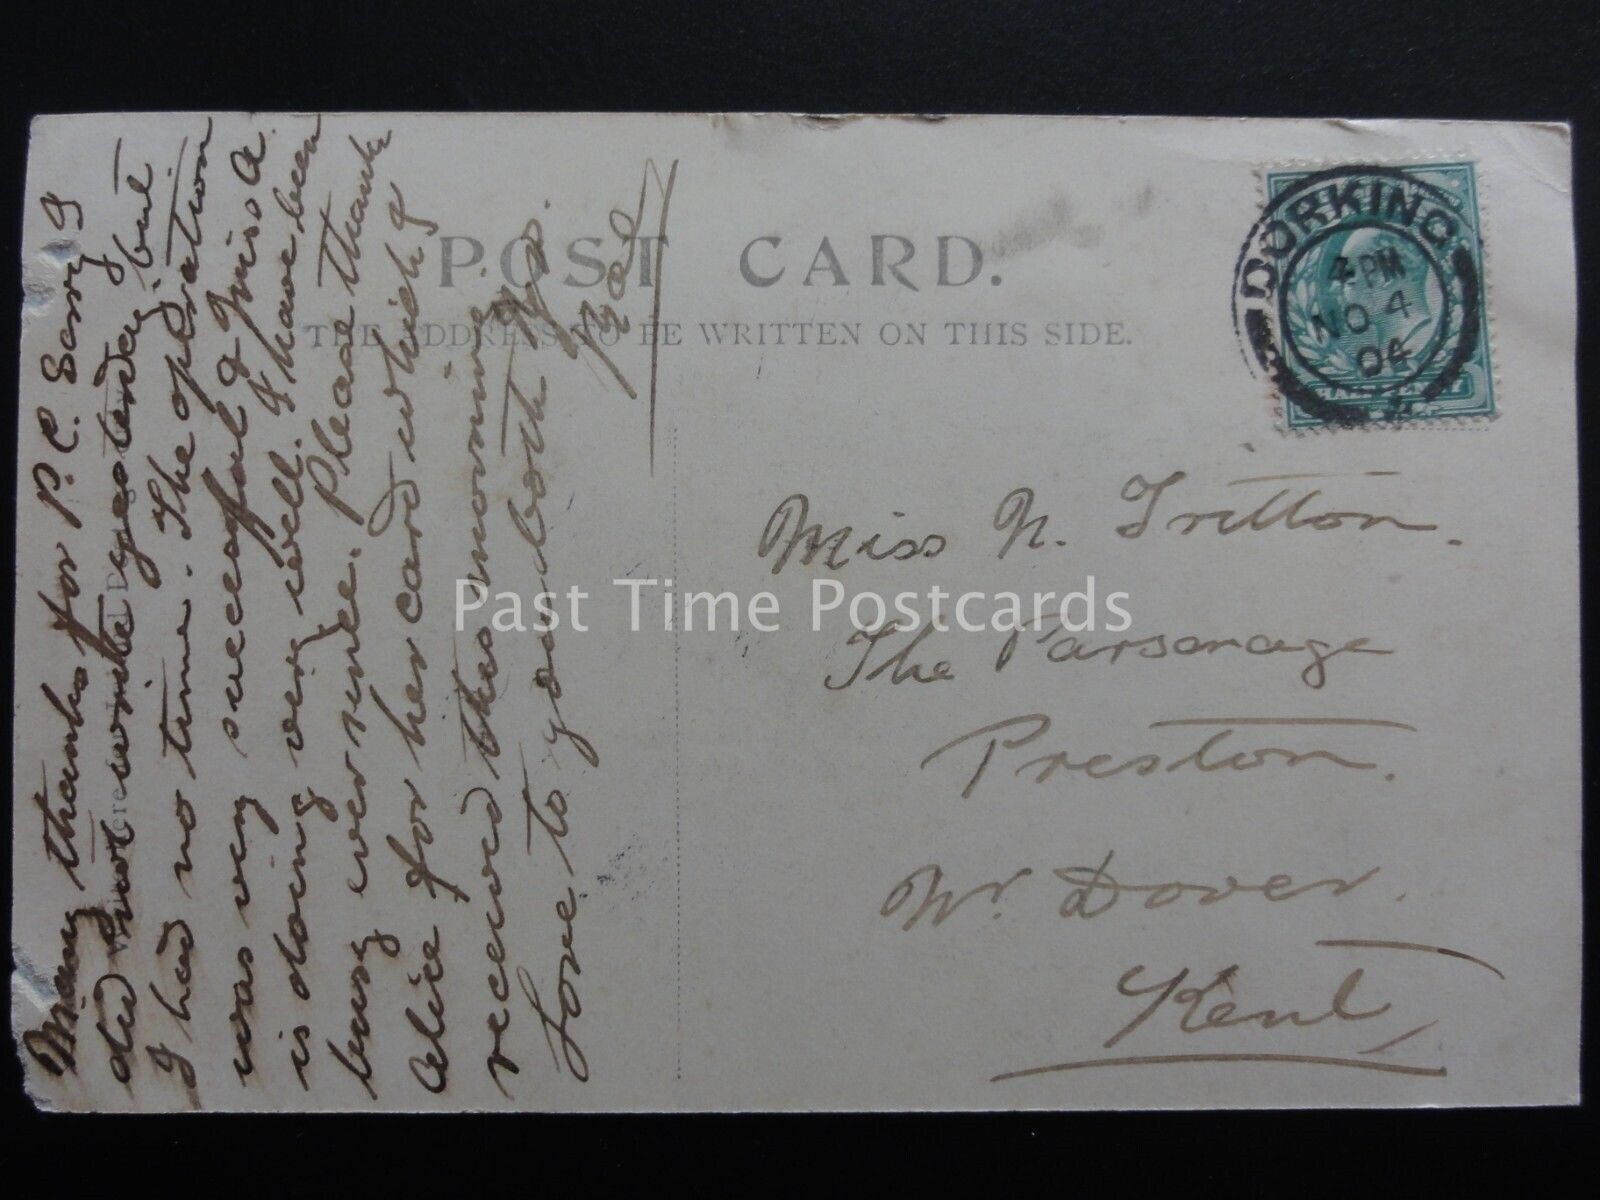 Many thanks for P.C. Sorry I
did not write yesterday but
I had no time. The operation
was very successful & Miss A.
is doing very well. I have been
busy ever since. Please thank
Alice for her card which I
received this morning.
Love to you both
POST CARD.
THE ADDRESS TO BE WRITTEN ON THIS SIDE.
DORKING
4 PM
NO 4
04
HALFPENNY
Miss N. Tritton.
The Parsonage
Preston.
Nr. Dover.
Kent
Past Time Postcards